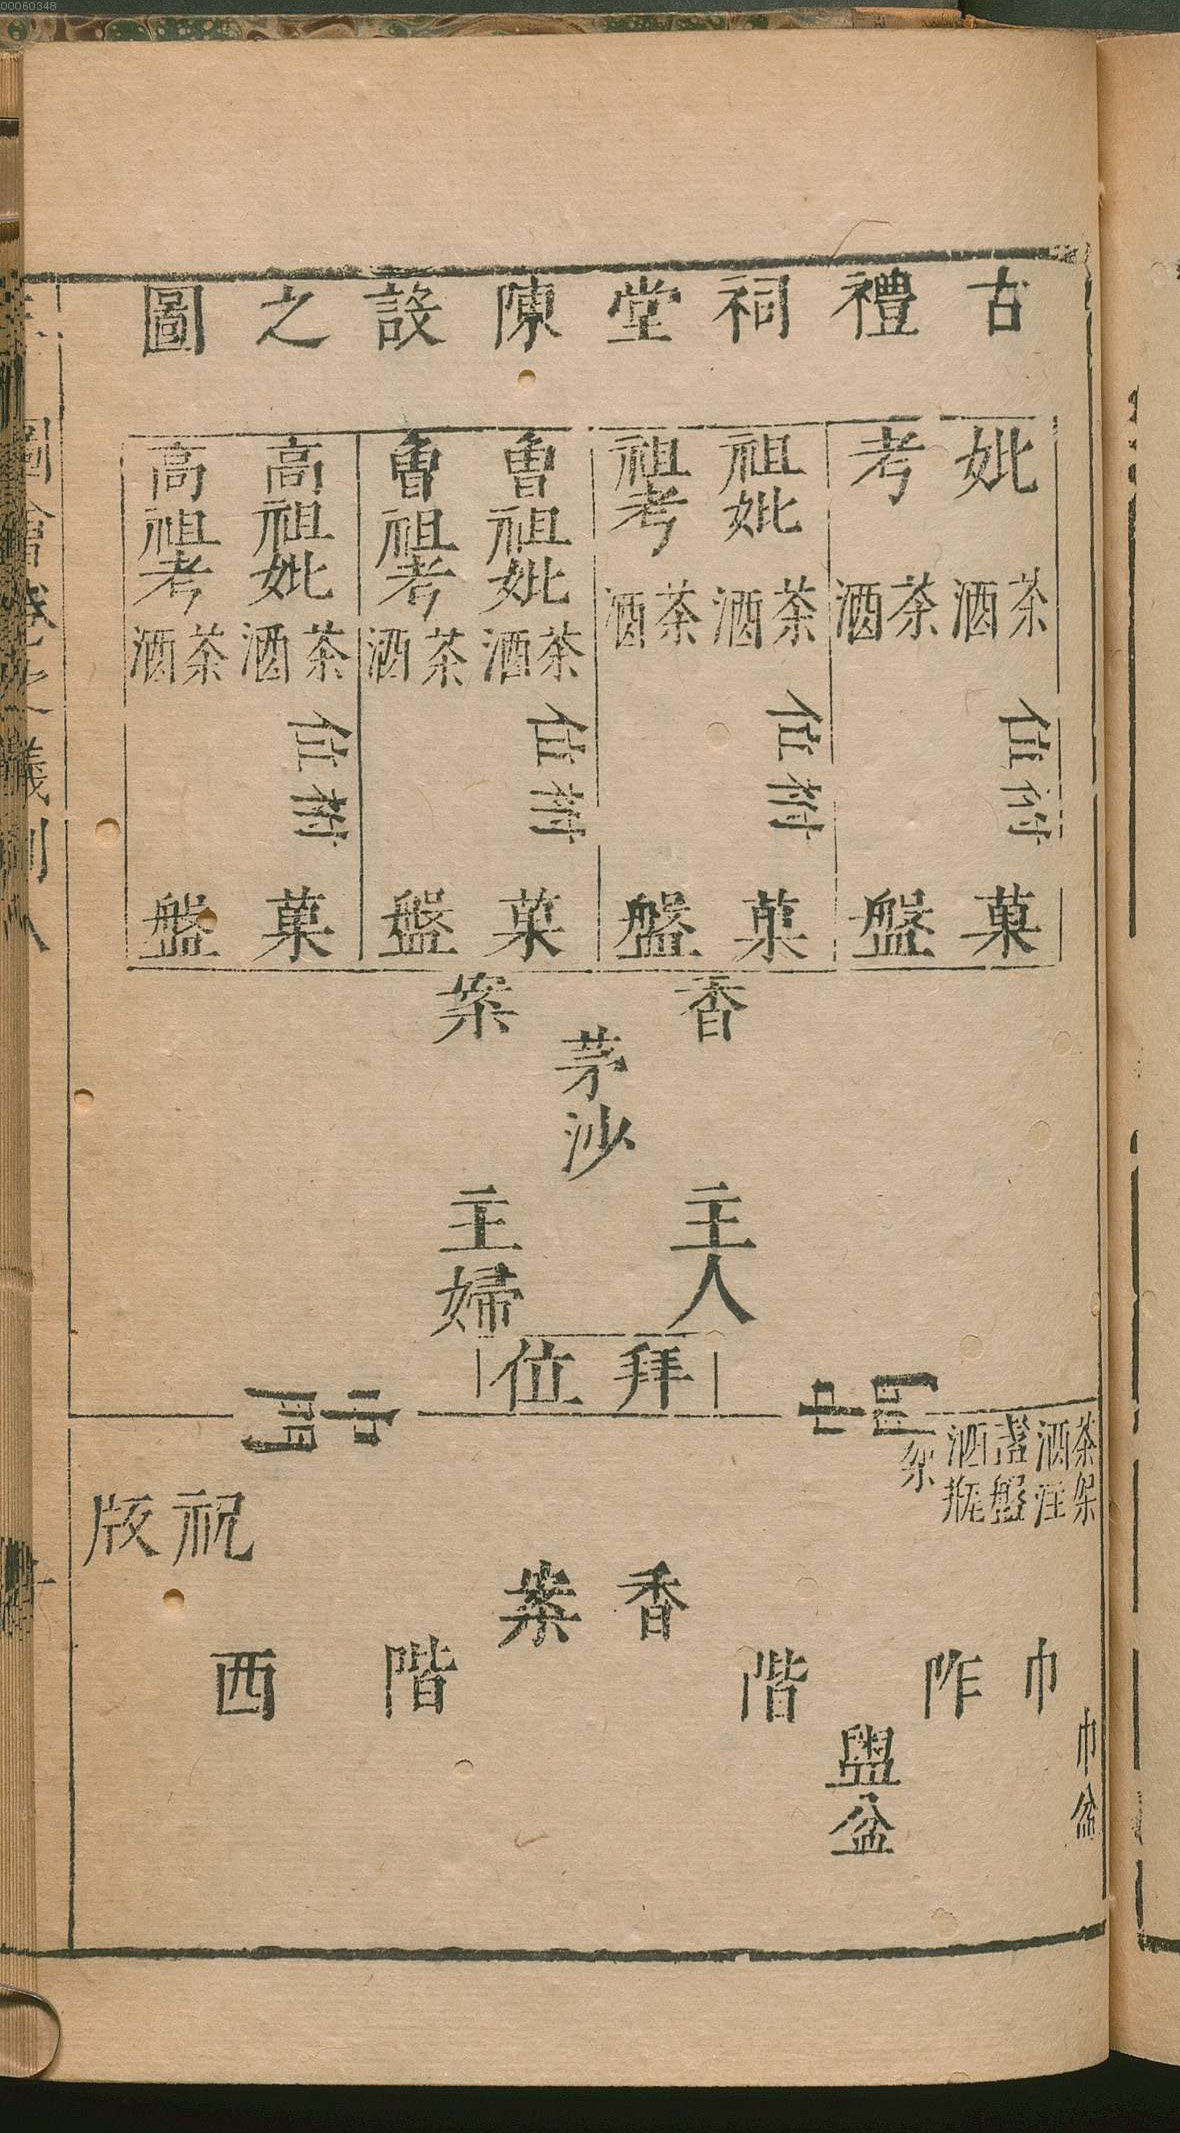 00060348
古禮祠堂陳設之圖
妣 茶酒
考 茶酒
祖妣 茶酒
祖考 茶酒
曾祖妣 茶酒
曾祖考 茶酒
高祖妣 茶酒
高祖考 茶酒
祔位
祔位
祔位
祔位
菓盤
菓盤
菓盤
菓盤
香案
茅沙
主人
主婦
拜位
茶架
酒注
盞盤
酒瓶
架
祝版
香案
巾
阼階
階西
巾盆
盥盆
圖會
儀制八